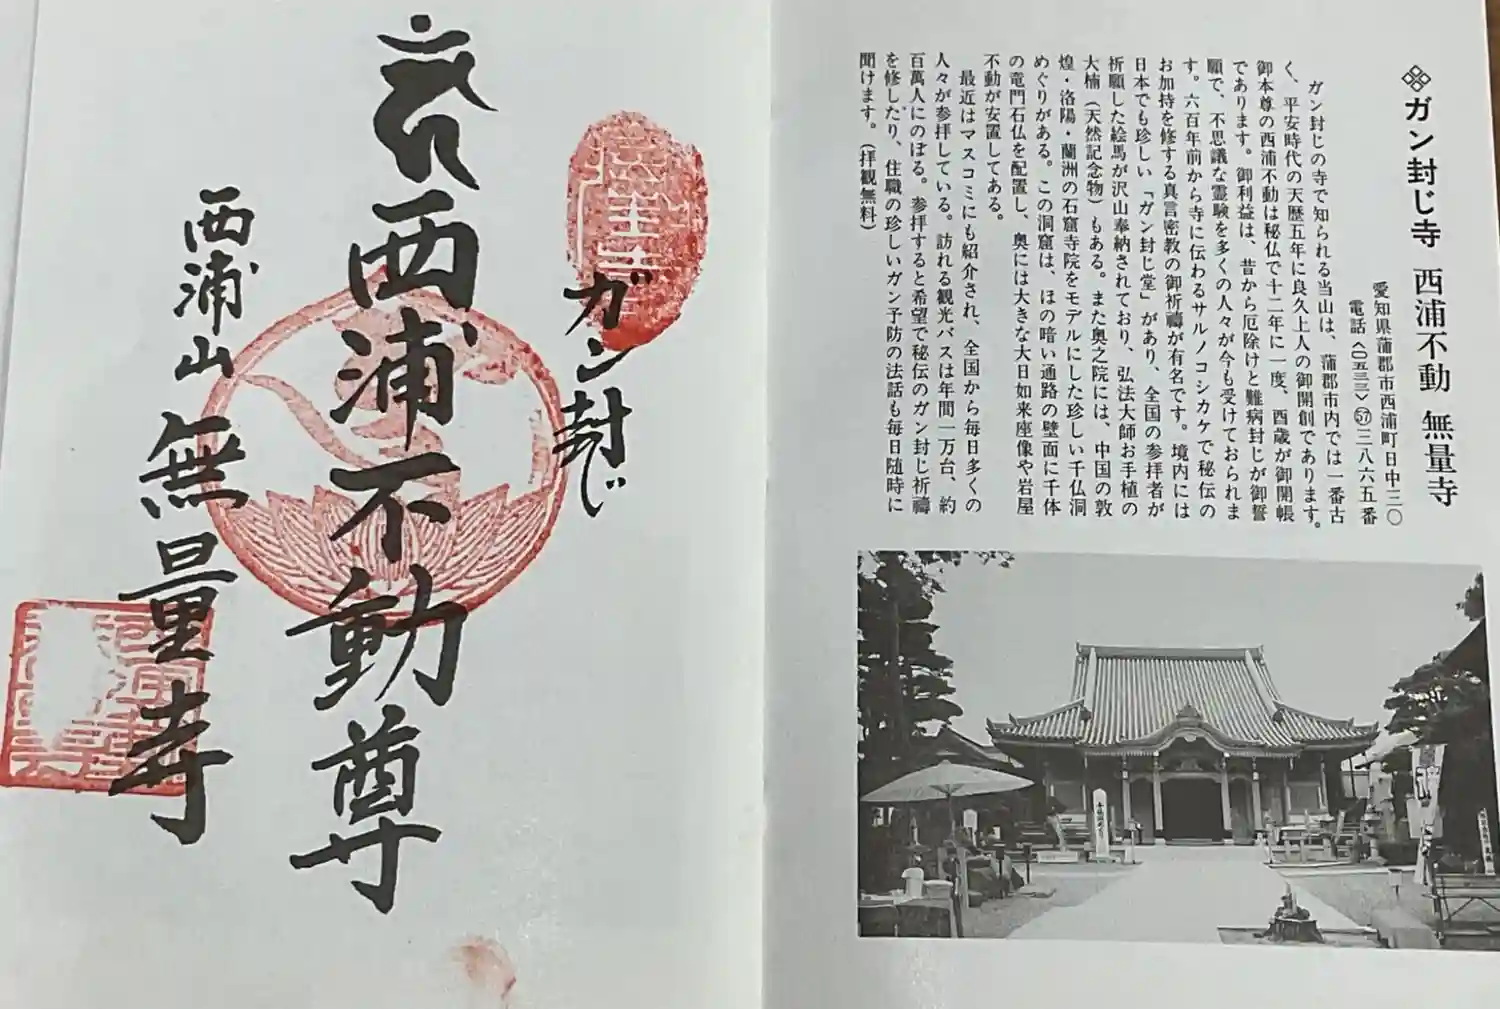 ガン封じ寺 西浦不動 無量寺
愛知県蒲郡市西浦町日中三〇
電話〈〇五三三〉㊼三八六五番
ガン封じの寺で知られる当山は、蒲郡市内では一番古
く、平安時代の天歴五年に良久上人の御開創であります。
御本尊の西浦不動は秘仏で十二年に一度、酉歳が御開帳
であります。御利益は、昔から厄除けと難病封じが御誓
願で、不思議な霊験を多くの人々が今も受けておられま
す。六百年前から寺に伝わるサルノコシカケで秘伝の
お加持を修する真言密教の御祈禱が有名です。境内には
日本でも珍しい「ガン封じ堂」があり、全国の参拝者が
祈願した絵馬が沢山奉納されており、弘法大師お手植の
大楠（天然記念物）もある。また奥之院には、中国の敦
煌・洛陽・蘭洲の石窟寺院をモデルにした珍しい千仏洞
めぐりがある。この洞窟は、ほの暗い通路の壁面に千体
の竜門石仏を配置し、奥には大きな大日如来座像や岩屋
不動が安置してある。
最近はマスコミにも紹介され、全国から毎日多くの
人々が参拝している。訪れる観光バスは年間一万台、約
百萬人にのぼる。参拝すると希望で秘伝のガン封じ祈禱
を修したり、住職の珍しいガン予防の法話も毎日随時に
聞けます。（拝観無料）
ガン封じ
西浦不動尊
西浦山 無量寺